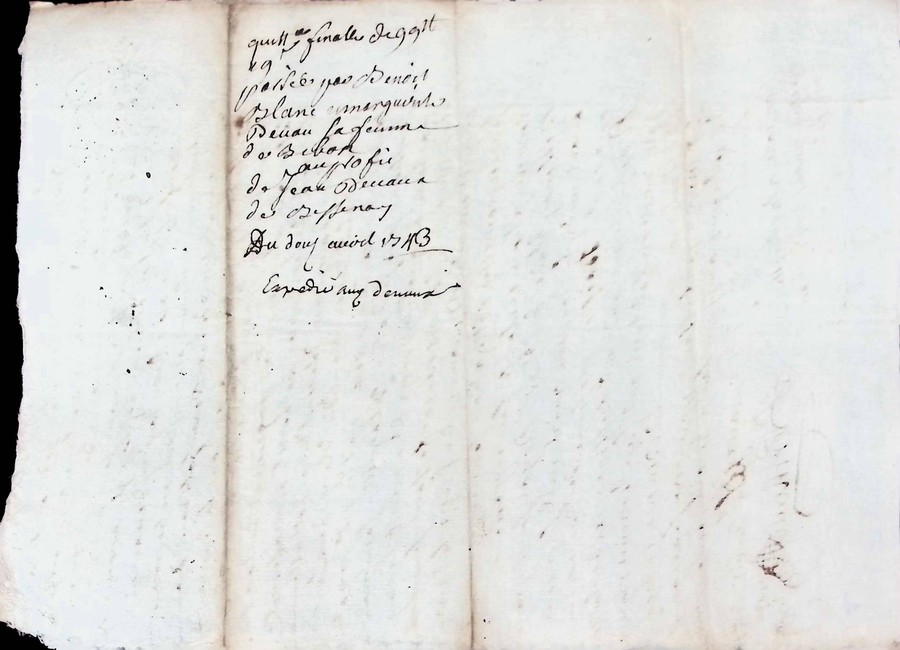 quitt.ce finalle de 99tt
19s
passée par Benoit
Blanc & marguerite
Devau sa femme
de Bibost
au profit
de Jean Devaux
de Bessenay
Du douz avril 1743
Expedié aux devaux